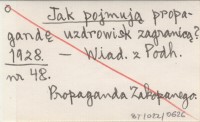 Jak pojmują propa-
gandę uzdrowisk zagranicą?
1928. — Wiad. z Podh.
nr 48.
Propaganda Zakopanego.